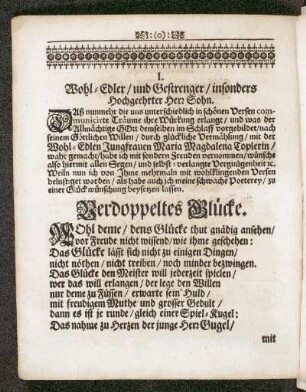 :(0):
I.
Wohl-Edler/ und Gestrenger/ insonders
Hochgeehrter Herr Sohn.
DAß nunmehr die uns unterschiedlich in schönen Versen com-
municirte Träume ihre Würckung erlange/ und was der
Allmächtige GOtt denselben im Schlaff vorgebildet/ nach
seinem Göttlichen Willen/ durch glückliche Vermählung/ mit der
Wohl-Edlen Jungfrauen Maria Magdalena Copierin/
wahr gemacht/ habe ich mit sondern Freuden vernommen/ wünsche
also hiermit allen Segen/ und selbst-verlangte Vergnügenheit ꝛc.
Weiln nun ich von Ihme mehrmaln mit wohlklingenden Versen
belustiget worden/ als habe auch ich meine schwache Poeterey/ zu
einer Glückwünschung beysetzen lassen.
Verdoppeltes Glücke.
WOhl deme/ dens Glücke thut gnädig ansehen/
vor Freude nicht wissend/ wie ihme geschehen:
Das Glücke lässt sich nicht zu einigen Dingen/
nicht nöthen/ nicht treiben/ noch minder bezwingen.
Das Glücke den Meister will jederzeit spielen/
wer das will erlangen/ der lege den Willen
nur deme zu Füssen/ erwarte sein Huld/
mit freudigem Muthe und grosser Gedult/
dann es ist je runde/ gleich einer Spiel-Kugel:
Das nahme zu Herzen der junge Herr Gugel/
mit